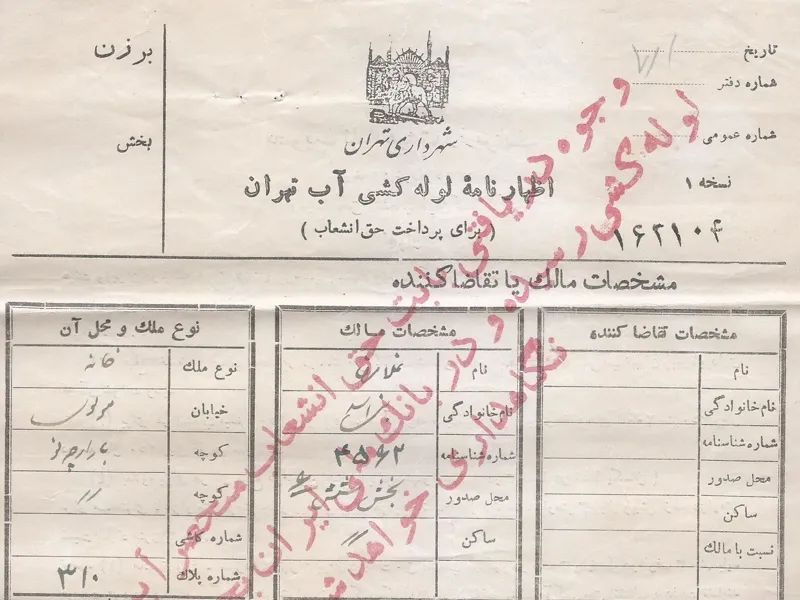 تاریخ
برزن
شماره دفتر
شهرداری تهران
شماره عمومی
بخش
نسخه ۱
اظهارنامهٔ لوله کشی آب تهران
( برای پرداخت حق انشعاب )
۱۶۲۱۰۴
مشخصات مالک یا تقاضا کننده
مشخصات تقاضا کننده
نام
نام خانوادگی
شماره شناسنامه
محل صدور
ساکن
نسبت با مالک
مشخصات مالک
نام
نام خانوادگی
شماره شناسنامه ۴۵۶۲
محل صدور بخش
ساکن
نوع ملک و محل آن
نوع ملک خانه
خیابان مولوی
کوچه
کوچه
شماره کاشی
شماره پلاک ۳۱۰
وجوه دریافتی بابت حق انشعاب منحصر
لوله کشی رسیده و در بانک ملی ایران
نگاهداری خواهد